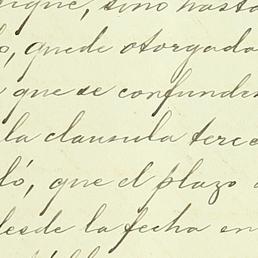 sino hasta
quede otorgada
que se confunden
la clausula terce
ló, que el plazo
desde la fecha en